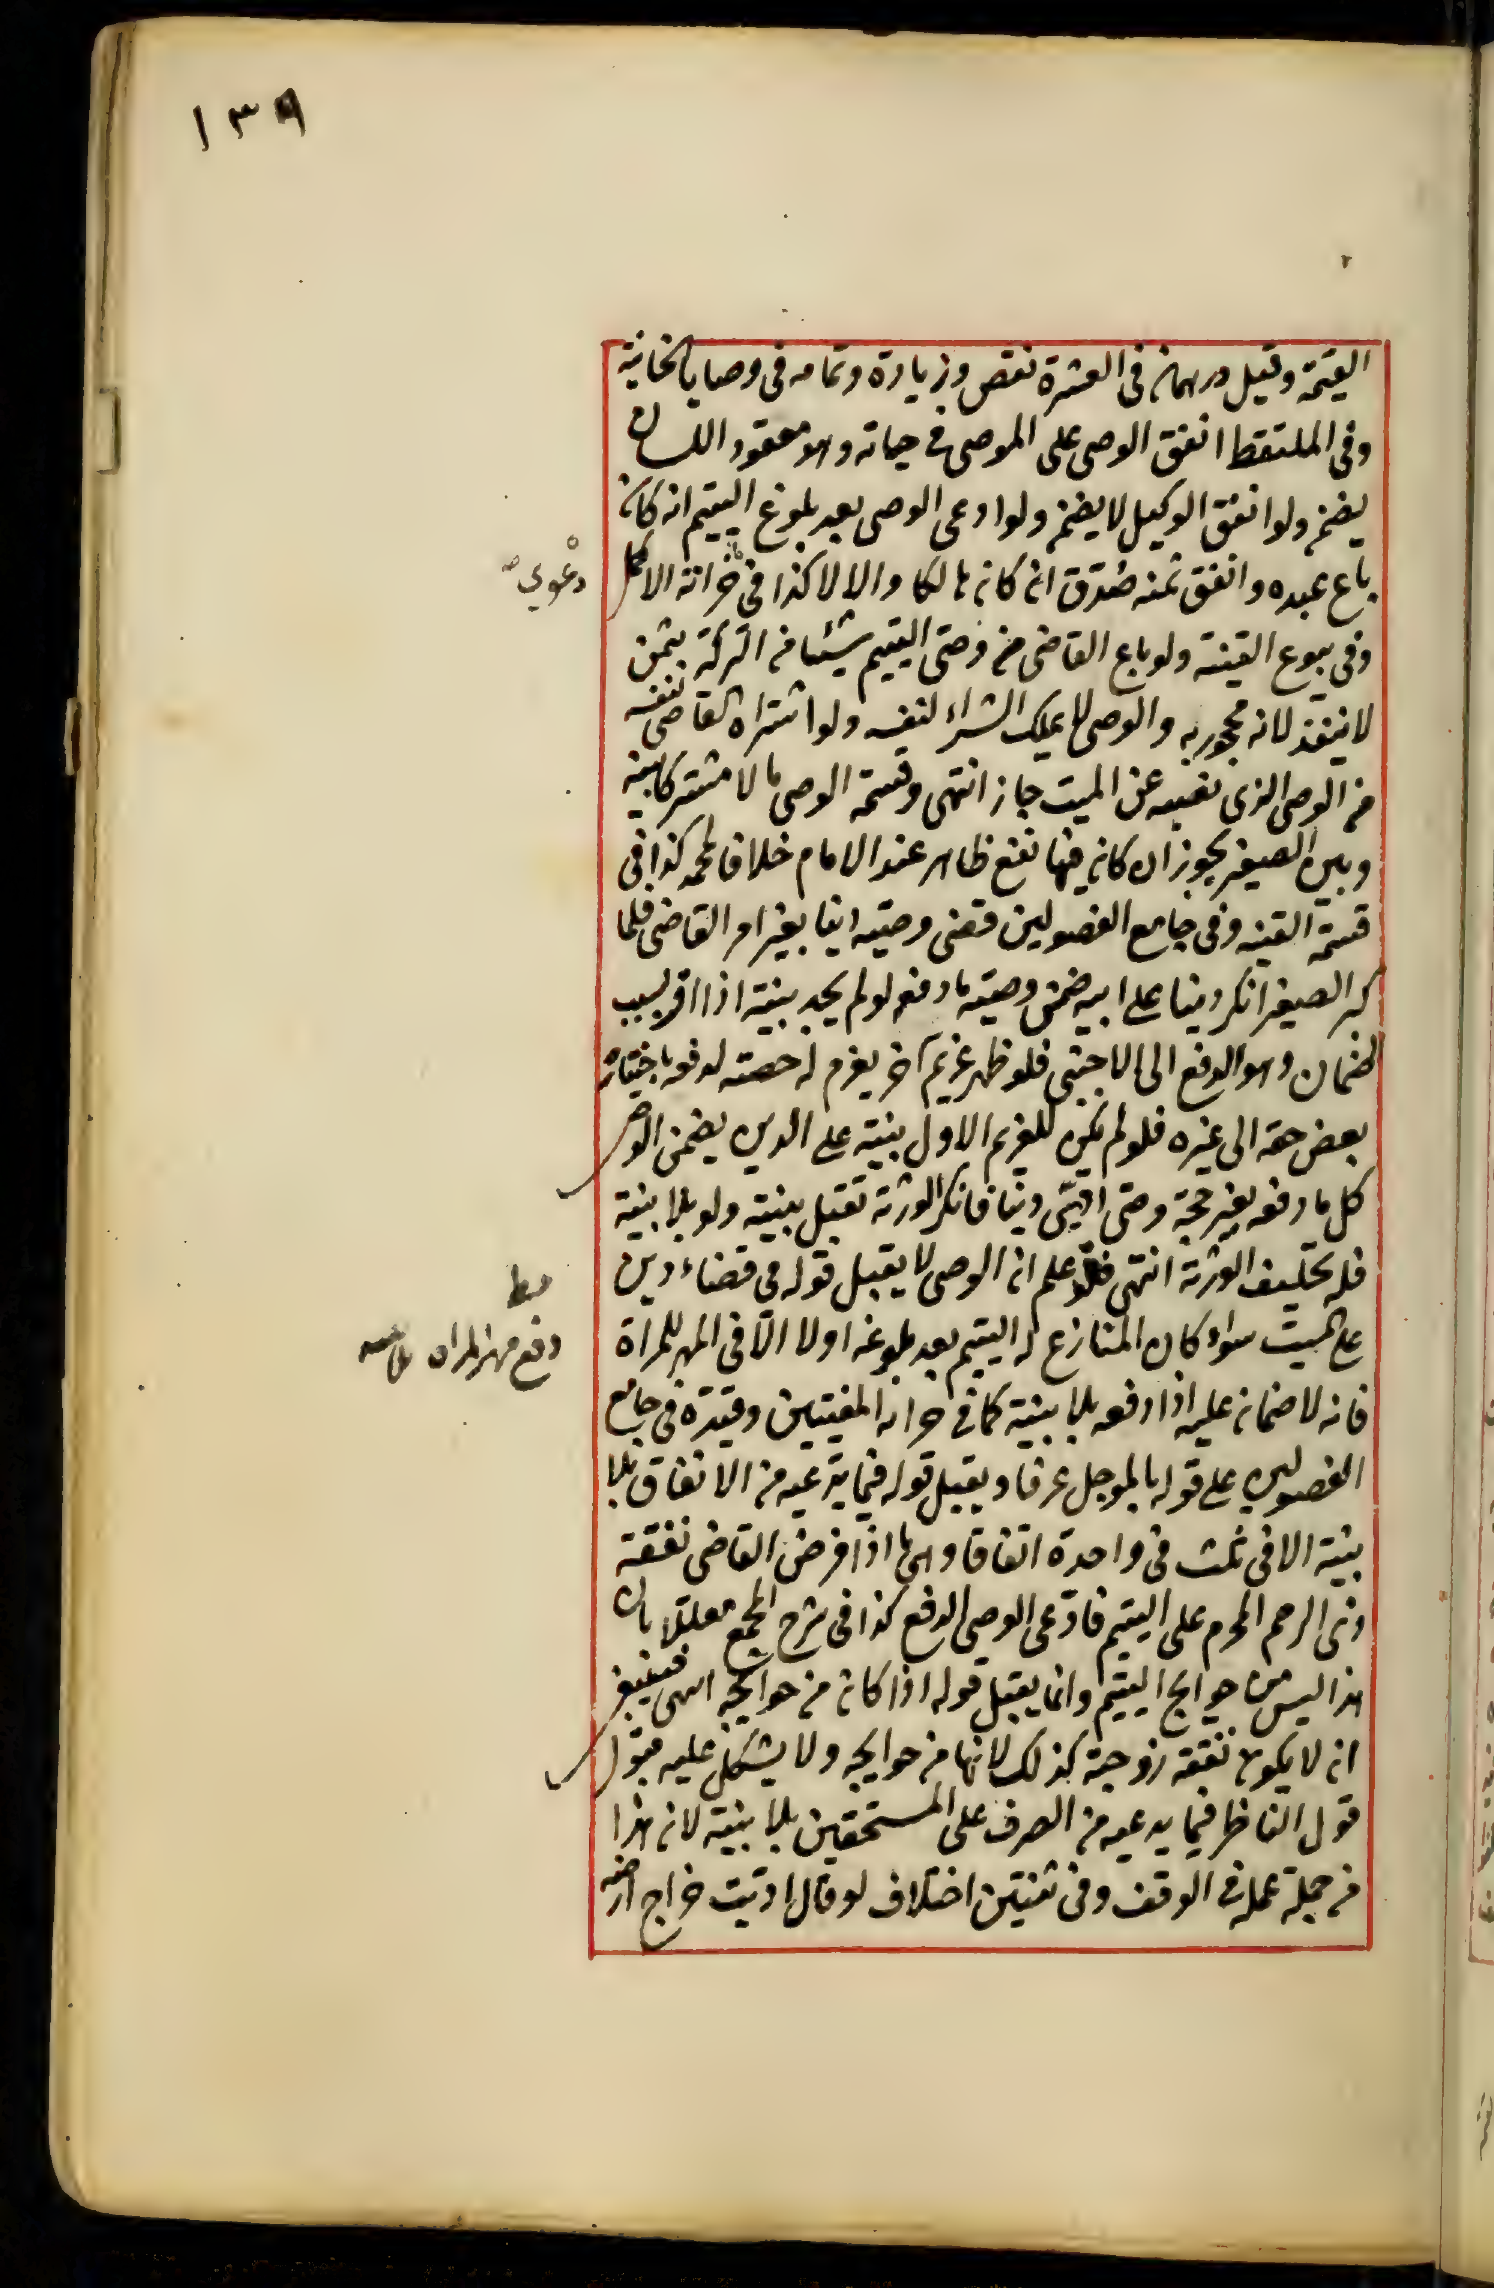 ١٣٩
القيمة وقيل درهمان في العشرة نقص وزيادة وتمامه في وصايا الخانية
وفي الملتقط انفق الوصي على الموصى في حياته وهو معقود اللسان
يضمن ولو انفق الوكيل لا يضمن ولو ادعى الوصي بعد بلوغ اليتيم انه كان
باع عبده وانفق ثمنه صُدّق ان كان هالكا والا لا كذا في خزانة الاكمل
دعوي
وفي بيوع القنية ولو باع القاضي من وصيّ اليتيم شيئا من التركة بثمن
لا ينفذ لانه محجور به والوصي لا يملك الشراء لنفسه ولو اشتراه القاضي لنفسه
من الوصي الذي نصبه عن الميت جاز انتهى وقسمة الوصي مالا مشتركا بينه
وبين الصغير يجوز ان كان فيها نفع ظاهر عند الامام خلافا لمحمد كذا في
قسمة القنيه وفي جامع الفصولين قضى وصيه دينا بغير امر القاضي فلما
كبر الصغير انكر دينا على ابيه ضمن وصيه ما دفعه لو لم يجد بينة اذا اقر بسبب
الضمان وهو الدفع الى الاجنبي فلو ظهر غريم آخر يغرم له حصته لدفعه باختياره
بعض حقه الى غيره فلو لم يكن للغريم الاول بينة على الدين يضمن الوصي
كل ما دفعه بغير حجة وصي ادّى دينا فانكر الورثة تقبل بينته ولو بلا بينة
فله تحليف الورثة انتهى فقد علم ان الوصي لا يقبل قوله في قضاء دين
على الميت سواء كان المنازع له اليتيم بعد بلوغه او لا الا في المهر للمراة
دفع مهر المراه
فانه لا ضمان عليه اذا دفعه بلا بينة كما في خزانه المفتيين وقيده في جامع
الفصولين على قول بالموجل عرفا ويقبل قوله فيما يدّعيه من الانفاق بلا
بينة الا في ثلث في واحدة اتفاقا وهي ما اذا فرض القاضي نفقة
ذي الرحم المحرم على اليتيم فادّعى الوصي الدفع كذا في شرح المجمع معللا بان
هذا ليس من حوايج اليتيم وانما يقبل قوله اذا كان من حوايجه انتهى فينبغي
ان لا يكون نفقة زوجته كذلك لانها من حوايجه ولا يشكل عليه قبول
قول الناظر فيما يدعيه من الصرف على المستحقين بلا بينة لان هذا
من جملة عمله في الوقف وفي ثنتين اختلاف لو قال ادّيت خراج ارضه